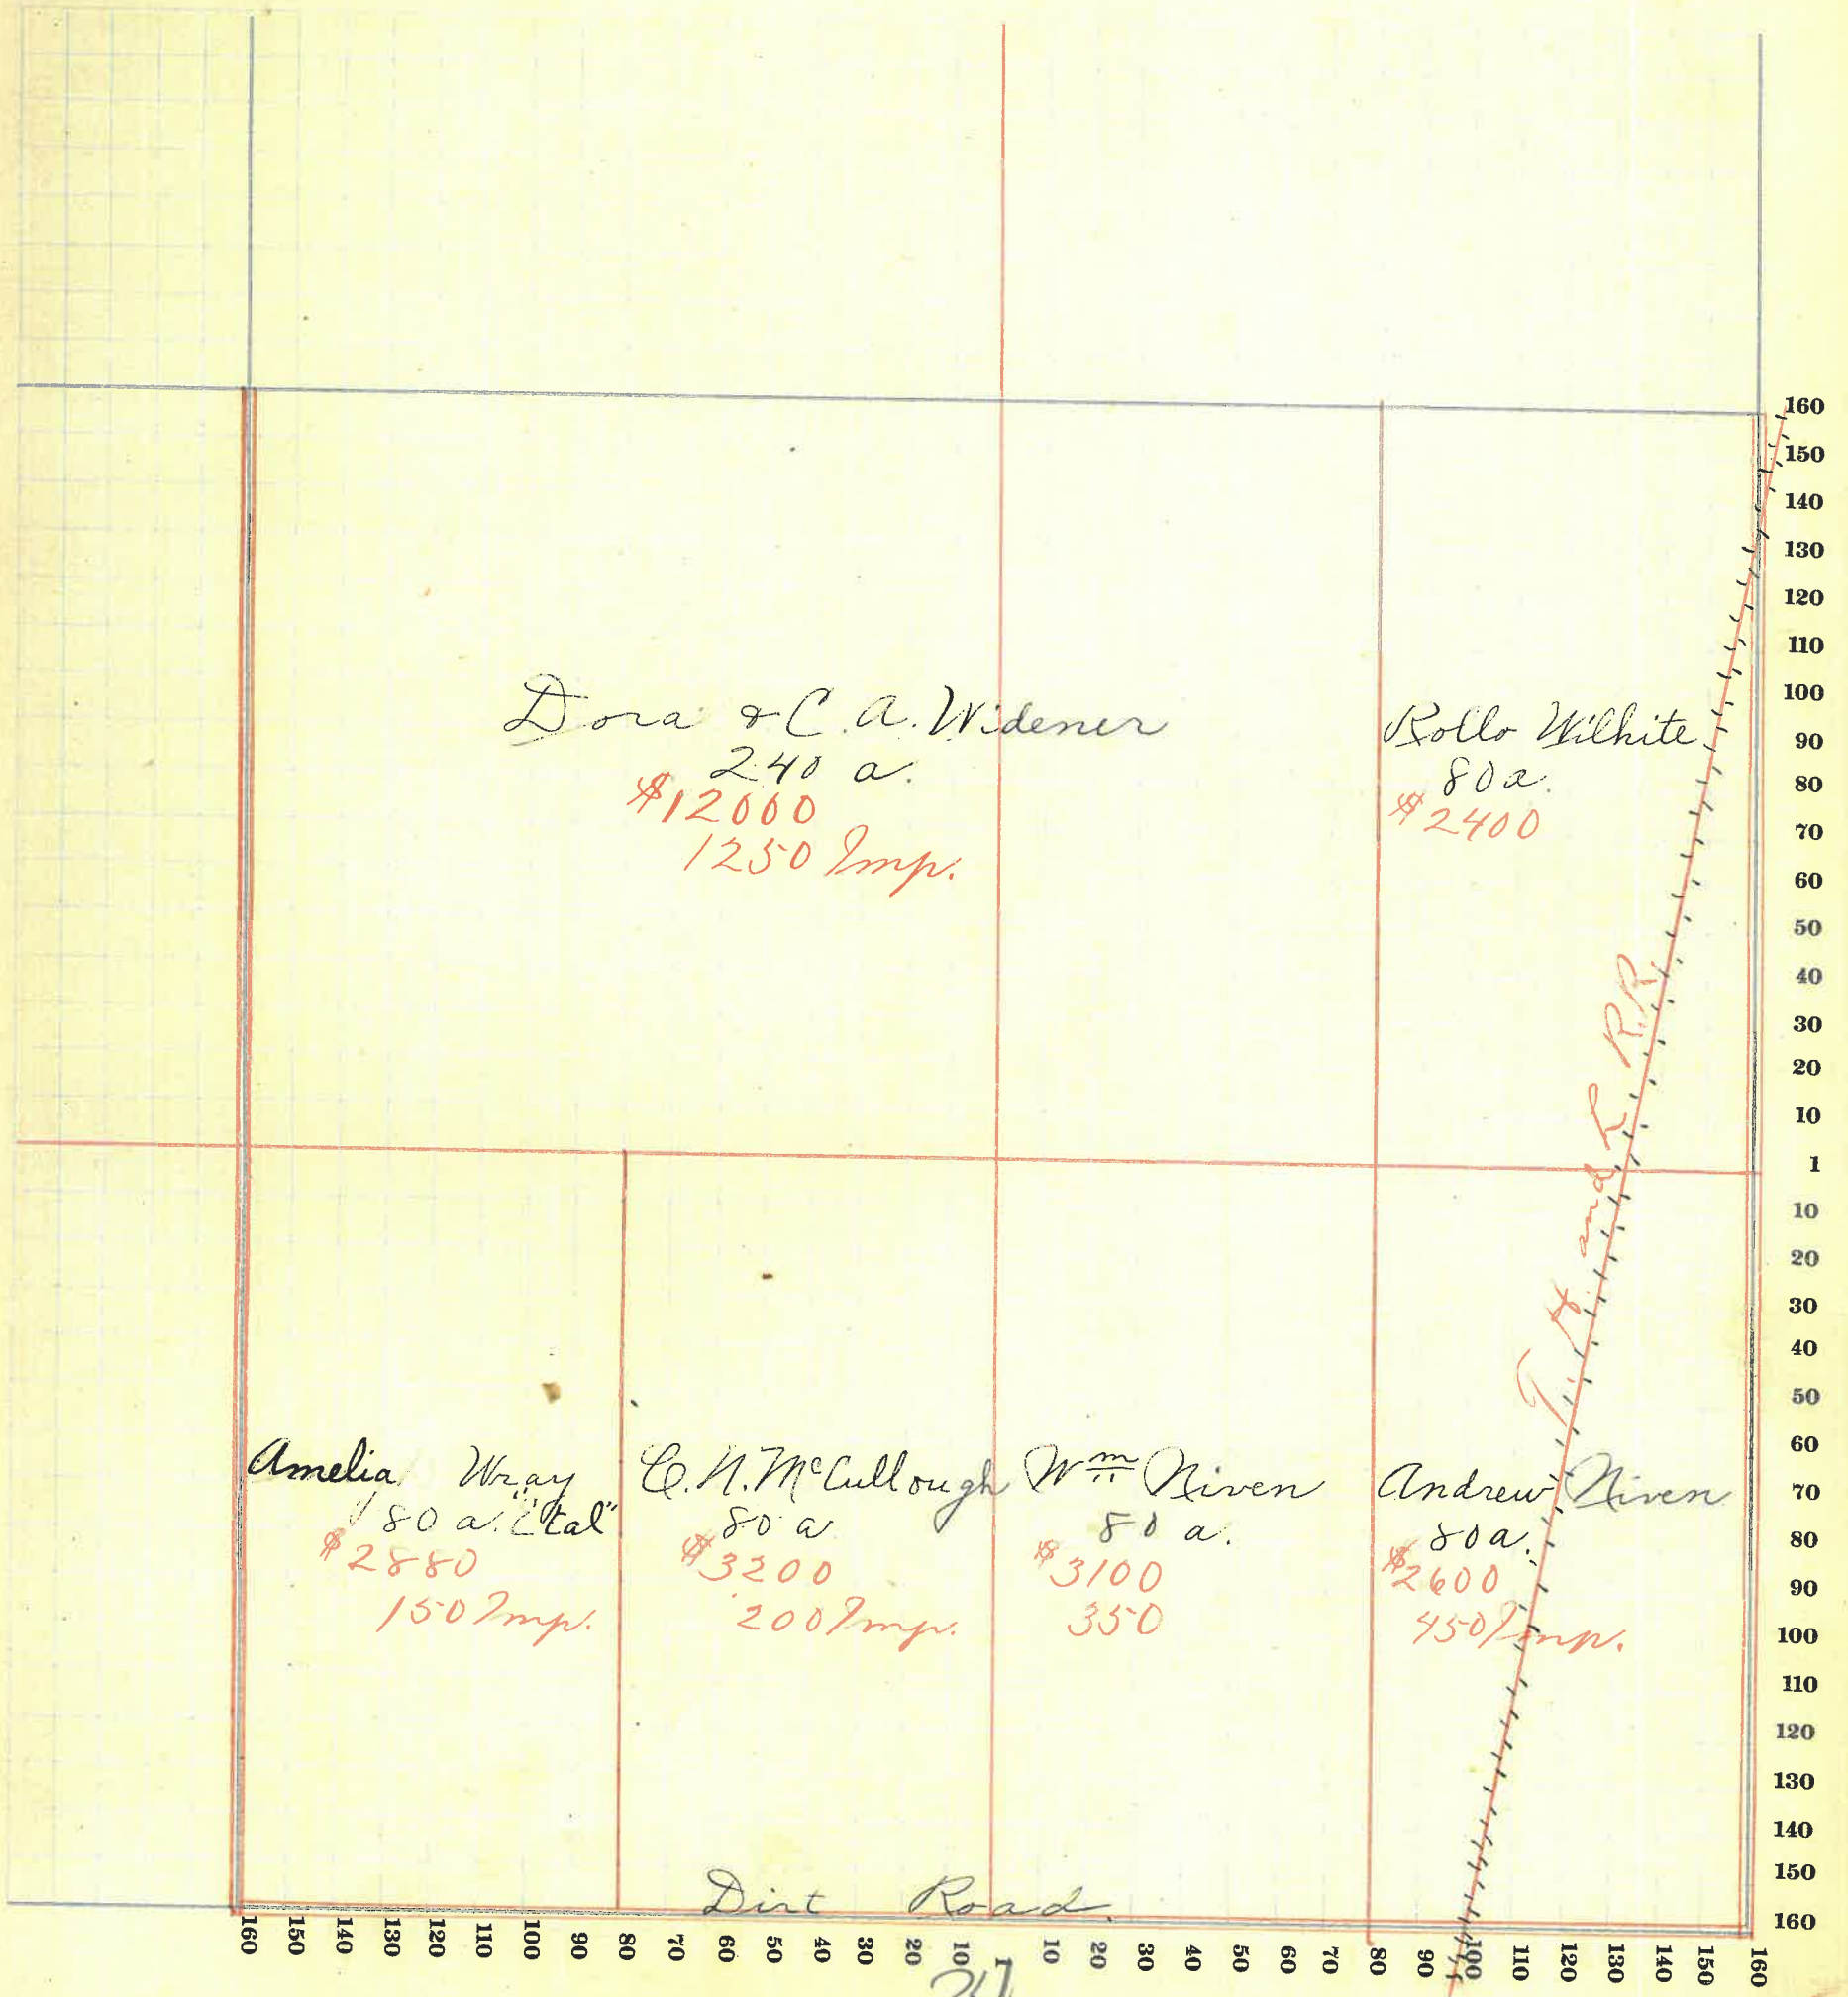 Dora & C. A. Widener
240 a.
$12000
1250 Imp.
Rollo Wilhite
80 a.
$2400
T. H. and L. R.R.
Amelia Wray
80 a. "Etal"
$2880
150 Imp.
C. N. McCullough
80 a
$3200
200 Imp.
Wm Niven
80 a.
$3100
350
Andrew Niven
80 a.
$2600
450 Imp.
Dirt Road.
160
150
140
130
120
110
100
90
80
70
60
50
40
30
20
10
1
10
20
30
40
50
60
70
80
90
100
110
120
130
140
150
160
160 150 140 130 120 110 100 90 80 70 60 50 40 30 20 10 1 10 20 30 40 50 60 70 80 90 100 110 120 130 140 150 160